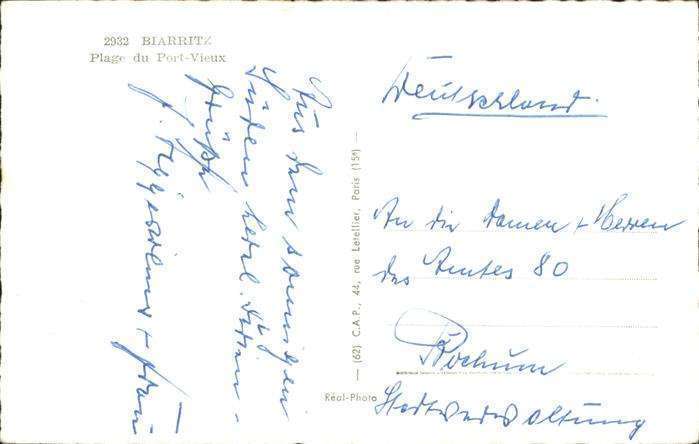 2932 BIARRITZ
Plage du Port-Vieux
Aus dem sonnigen
Süden herzl. Ferien-
grüße
u. Frau
— (62) C.A.P., 44, rue Letellier, Paris (15e) —
Réal-Photo
Deutschland.
An die Damen + Herren
des Amtes 80
Bochum
Stadtverwaltung